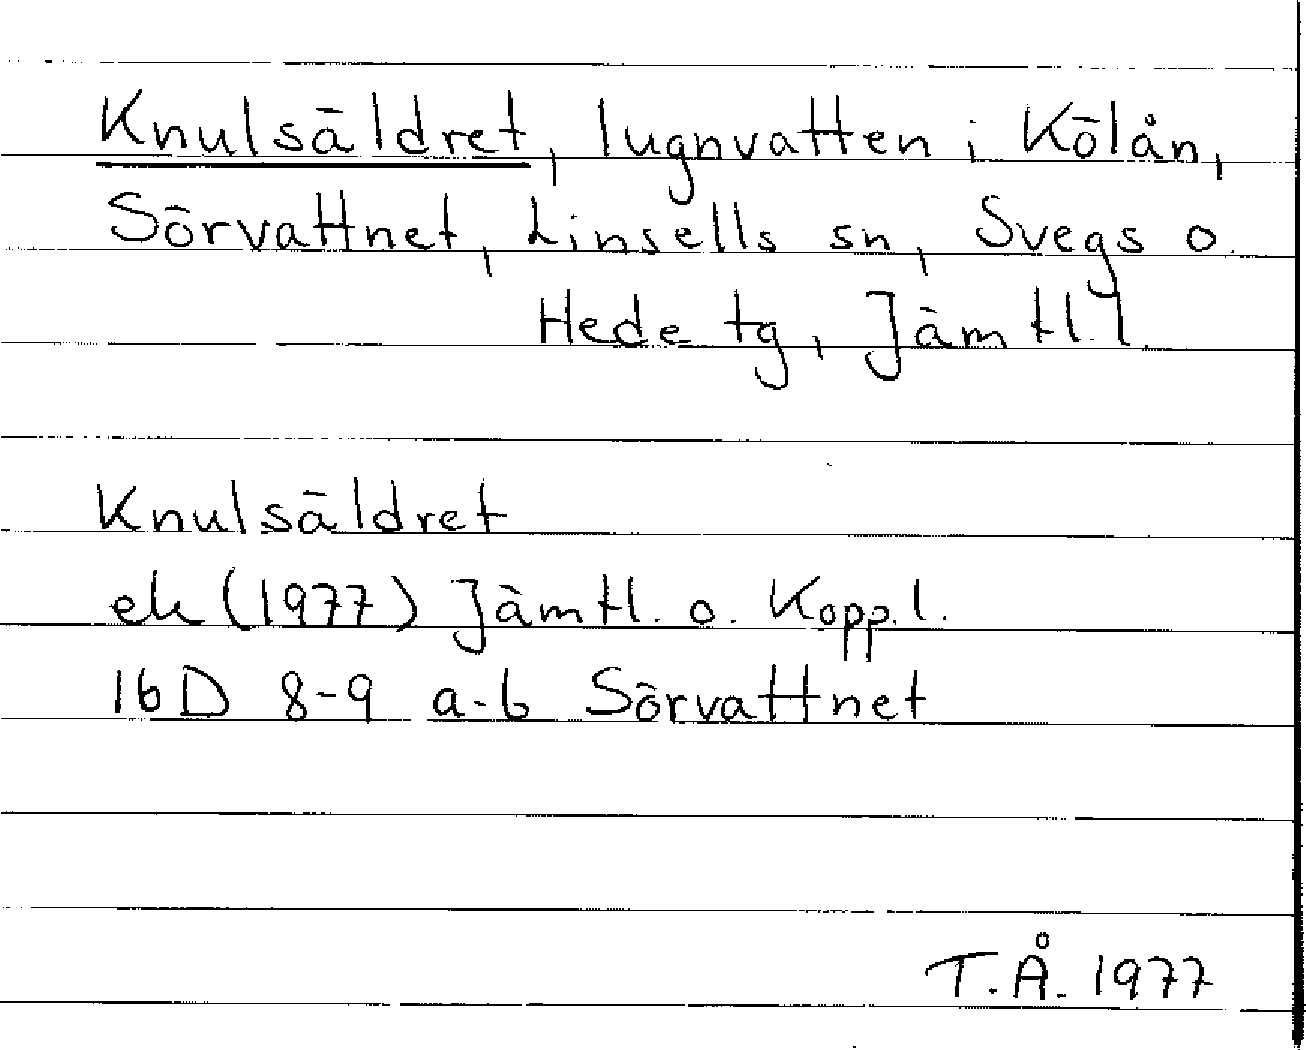 Knulsäldret, lugnvatten i Kölån,
Sörvattnet, Linsells sn, Svegs o.
Hede tg, Jämtl. l
Knulsäldret
ek (1977) Jämtl. o. Kopp. l.
16D 8-9 a-b Sörvattnet
T.Å. 1977